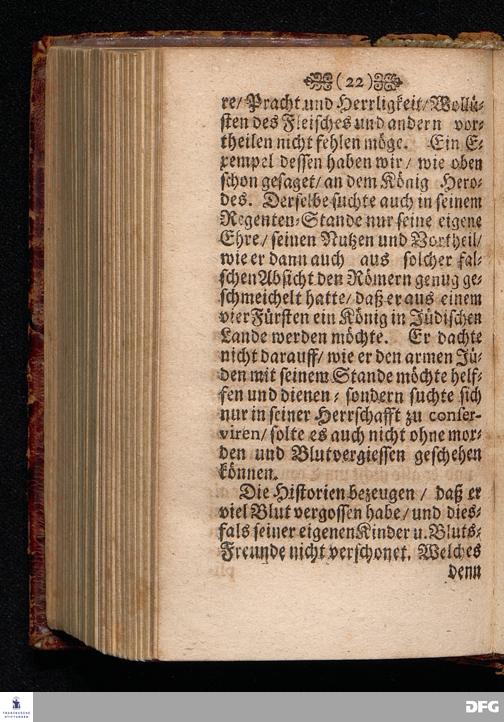 (22)
re/ Pracht und Herrligkeit/ Wollü-
sten des Fleisches und andern vor-
theilen nicht fehlen möge. Ein E-
xempel dessen haben wir/ wie oben
schon gesaget/ an dem König Hero-
des. Derselbe suchte auch in seinem
Regenten-Stande nur seine eigene
Ehre/ seinen Nutzen und Vortheil/
wie er dann auch aus solcher fal-
schen Absicht den Römern genug ge-
schmeichelt hatte/ daß er aus einem
vier Fürsten ein König in Jüdischen
Lande werden möchte. Er dachte
nicht darauff/ wie er den armen Jü-
den mit seinem Stande möchte helf-
fen und dienen- sondern suchte sich
nur in seiner Herrschafft zu conser-
viren/ solte es auch nicht ohne mor-
den und Blutvergiessen geschehen
können.
Die Historien bezeugen / daß er
viel Blut vergossen habe/ und dies-
fals seiner eigenen Kinder u. Bluts-
Freunde nicht verschonet. Welches
denn
FRANCKESCHE
STIFTUNGEN
DFG